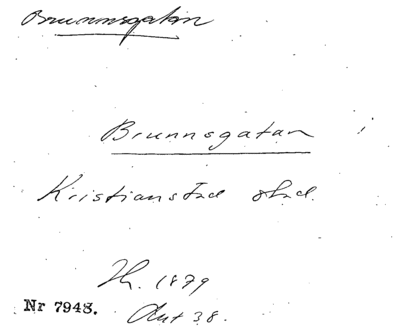 Brunnsgatan
Brunnsgatan
Kristianstad stad.
Th. 1879
Nr 7948.
Aut 38.